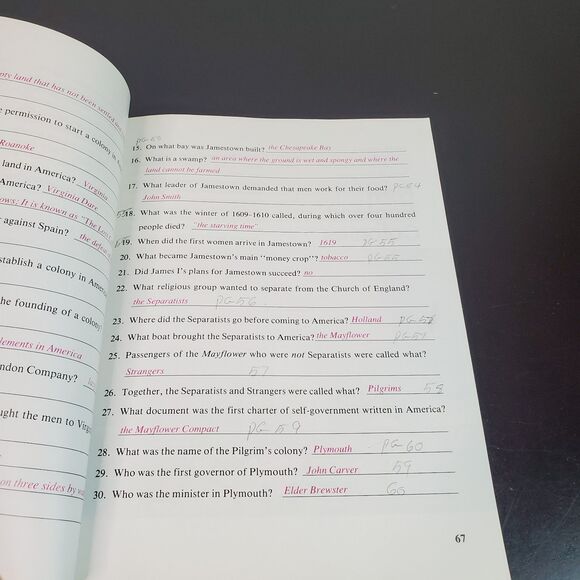 pty land that has not been settled
e permission to start a colony in
Roanoke
land in America? Virginia
America? Virginia Dare
ows; It is known as "The Lost
against Spain? the defea
stablish a colony in Americ
he founding of a colony
lements in America
ndon Company?
ught the men to Virg
on three sides by wa
15. On what bay was Jamestown built? the Chesapeake Bay
16. What is a swamp? an area where the ground is wet and spongy and where the
land cannot be farmed
17. What leader of Jamestown demanded that men work for their food? PG 54
John Smith
18. What was the winter of 1609-1610 called, during which over four hundred
people died? "the starving time"
19. When did the first women arrive in Jamestown? 1619 PG 55
20. What became Jamestown's main "money crop"? tobacco PG 55
21. Did James I's plans for Jamestown succeed? no
22. What religious group wanted to separate from the Church of England?
the Separatists PG 56
23. Where did the Separatists go before coming to America? Holland PG
24. What boat brought the Separatists to America? the Mayflower PG 57
25. Passengers of the Mayflower who were not Separatists were called what?
Strangers 57
26. Together, the Separatists and Strangers were called what? Pilgrims 58
27. What document was the first charter of self-government written in America?
the Mayflower Compact PG 59
28. What was the name of the Pilgrim's colony? Plymouth PG 60
29. Who was the first governor of Plymouth? John Carver 59
30. Who was the minister in Plymouth? Elder Brewster 60
67